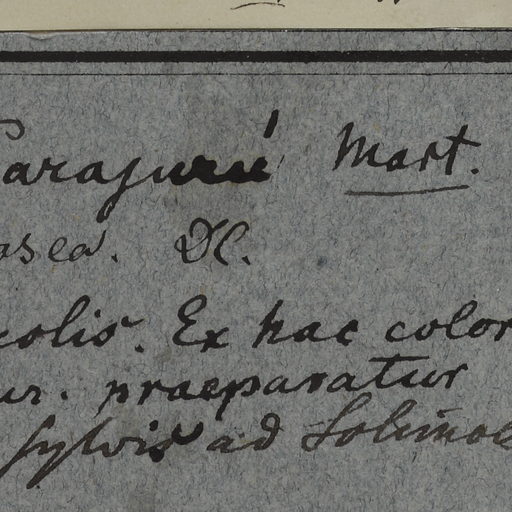 Carajurú Mart.
osea. DC.
colis. Ex hac color
ur. praeparatur
sylvis ad Solimoe